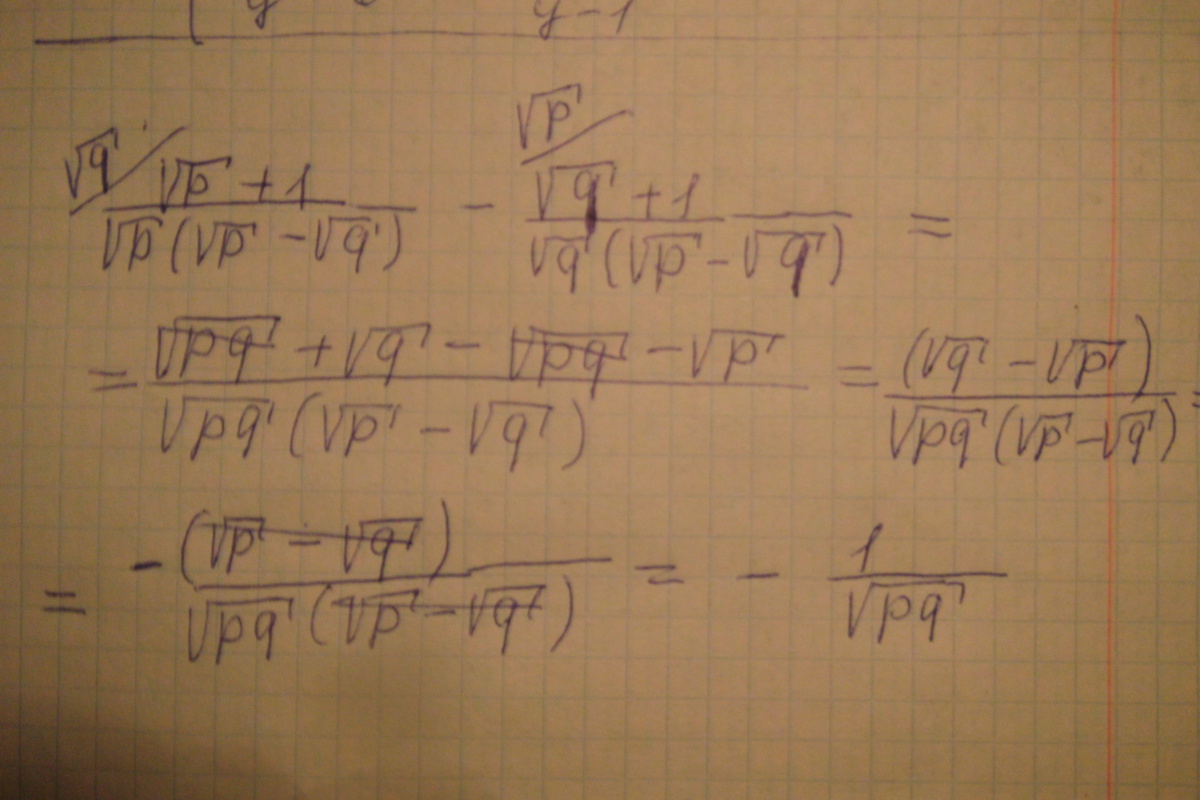 y - 1
√q / √p /
(√p + 1)/(√p(√p - √q)) - (√q + 1)/(√q(√p - √q)) =
= (√pq + √q - √pq - √p)/(√pq(√p - √q)) = (√q - √p)/(√pq(√p - √q)) =
= -(√p - √q)/(√pq(√p - √q)) = - 1/√pq